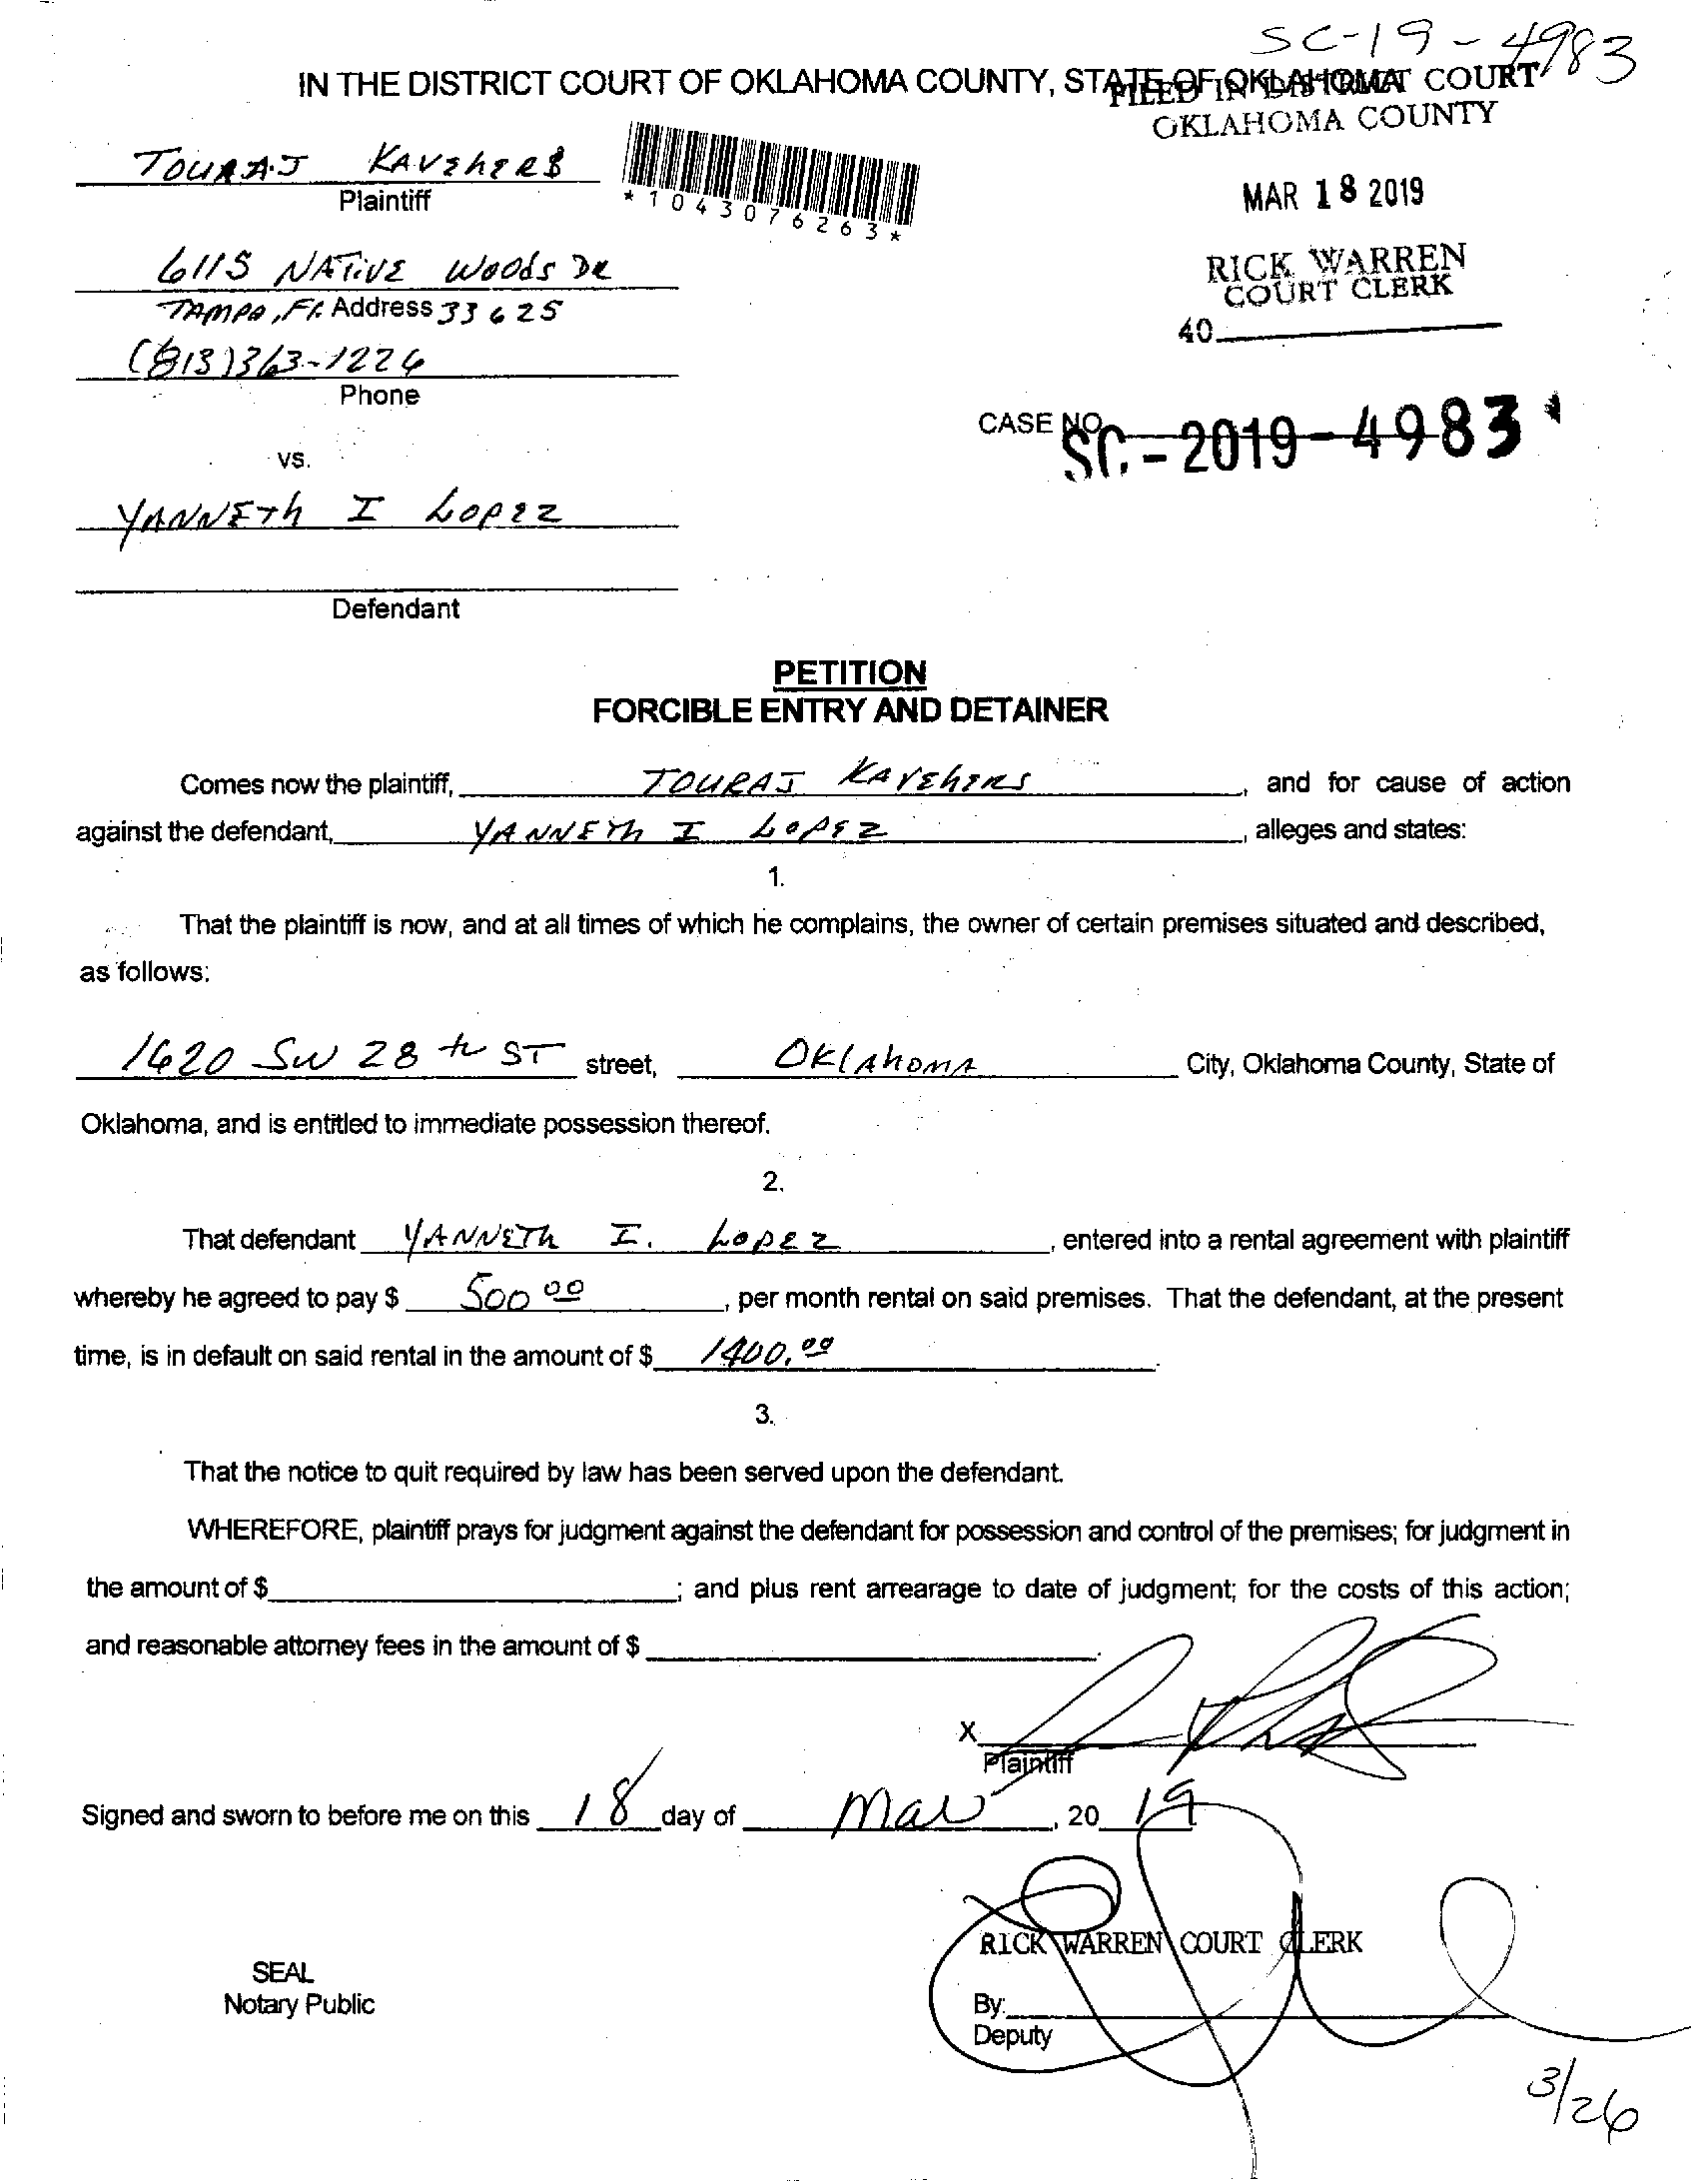 SC-19-4983
IN THE DISTRICT COURT OF OKLAHOMA COUNTY, STATE OF OKLAHOMA
FILED IN DISTRICT COURT
OKLAHOMA COUNTY
TOURAJ
Plaintiff
*1043076263*
MAR 18 2019
6115 NATIVE WOODS DR
RICK WARREN
COURT CLERK
TAMPA, FL Address 33625
40
(813)363-1226
Phone
CASE NO. SC-2019-4983
vs.
YANNETH I LOPEZ
Defendant
PETITION
FORCIBLE ENTRY AND DETAINER
Comes now the plaintiff, TOURAJ , and for cause of action
against the defendant, YANNETH I LOPEZ , alleges and states:
1.
That the plaintiff is now, and at all times of which he complains, the owner of certain premises situated and described,
as follows:
1620 SW 28th ST street, OKLAHOMA City, Oklahoma County, State of
Oklahoma, and is entitled to immediate possession thereof.
2.
That defendant YANNETH I. LOPEZ , entered into a rental agreement with plaintiff
whereby he agreed to pay $ 500 00 , per month rental on said premises. That the defendant, at the present
time, is in default on said rental in the amount of $ 1400.00 .
3.
That the notice to quit required by law has been served upon the defendant.
WHEREFORE, plaintiff prays for judgment against the defendant for possession and control of the premises; for judgment in
the amount of $ ; and plus rent arrearage to date of judgment; for the costs of this action;
and reasonable attorney fees in the amount of $ .
X
Plaintiff
Signed and sworn to before me on this 18 day of Mar , 20 19
RICK WARREN COURT CLERK
SEAL
Notary Public
By:
Deputy
3/26